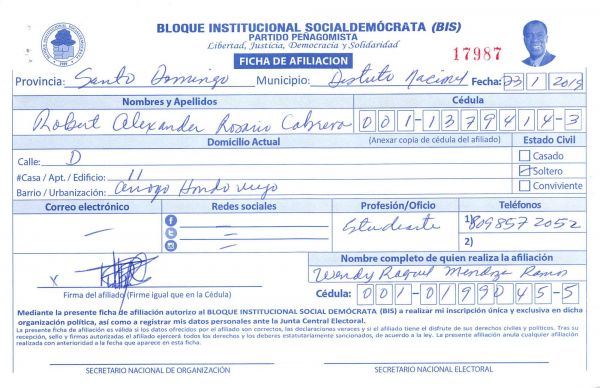 BLOQUE INSTITUCIONAL SOCIALDEMÓCRATA (BIS)
PARTIDO PEÑAGOMISTA
Libertad, Justicia, Democracia y Solidaridad
FICHA DE AFILIACION
17987
Provincia: Santo Domingo Municipio: Distrito Nacional Fecha: 23/1/2019
Nombres y Apellidos Cédula
Robert Alexander Rosario Cabrera 001-1379414-3
Domicilio Actual (Anexar copia de cédula del afiliado) Estado Civil
Calle: D Casado
#Casa / Apt. / Edificio: 11 Soltero
Barrio / Urbanización: Arroyo Hondo viejo Conviviente
Correo electrónico Redes sociales Profesión/Oficio Teléfonos
Estudiante 1) 809 857 2052
2)
Nombre completo de quien realiza la afiliación
x Wendy Raquel Mendoza Ramos
Firma del afiliado (Firme igual que en la Cédula) Cédula: 001-0199045-5
Mediante la presente ficha de afiliación autorizo al BLOQUE INSTITUCIONAL SOCIAL DEMÓCRATA (BIS) a realizar mi inscripción única y exclusiva en dicha
organización política, así como a registrar mis datos personales ante la Junta Central Electoral.
La presente ficha de afiliación es válida si los datos ofrecidos por el afiliado son correctos, las declaraciones veraces y si el afiliado tiene el disfrute de sus derechos civiles y políticos. Tras su
recepción, sello y firmas autorizadas el afiliado ejercerá todos los derechos y los deberes estatutariamente sancionados, de acuerdo a la ley. La presente afiliación anula cualquier afiliación
realizada con anterioridad a la fecha que aparece en esta ficha.
SECRETARIO NACIONAL DE ORGANIZACIÓN SECRETARIO NACIONAL ELECTORAL